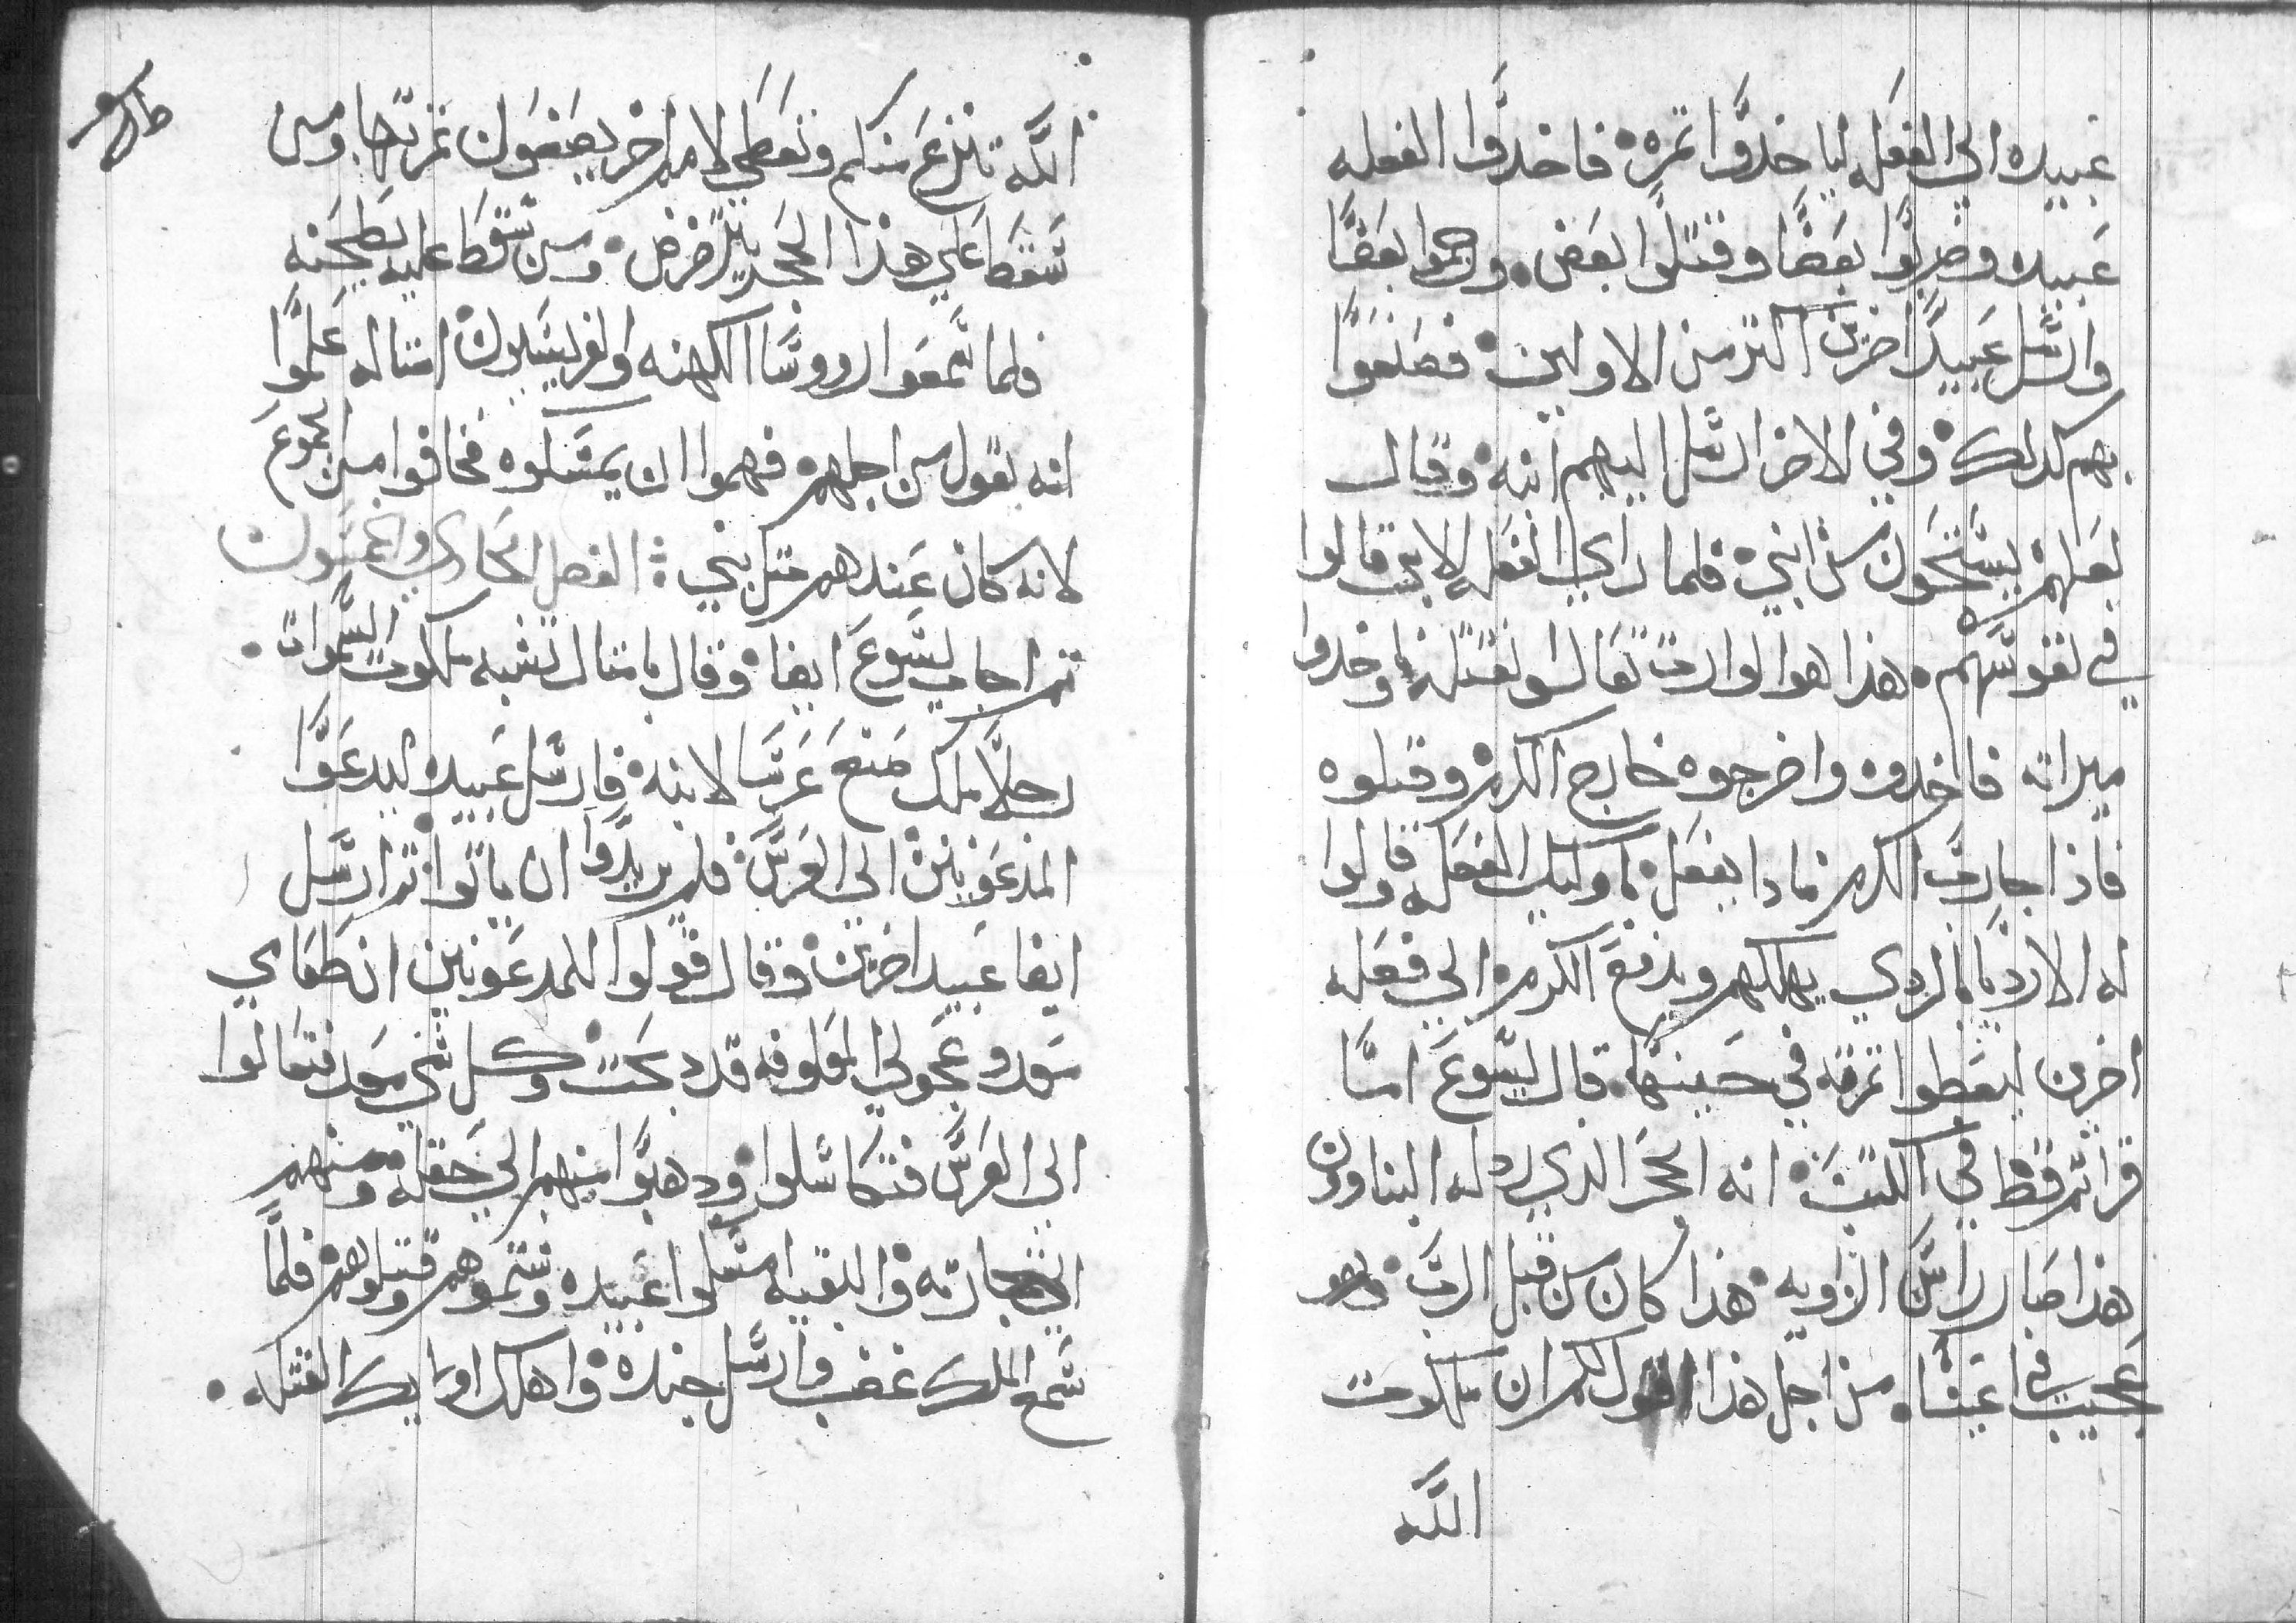 عبيده الي الفعله لياخدوا تمره فاخدوا الفعله
عبيده وضربوا بعضا وقتلوا بعض ورجموا بعضا
وارسل عبيدا اخرين اكتر من الاولين فصنعوا
بهم كدلك وفي الاخر ارسل اليهم ابنه وقال
لعلهم يستحون من ابني فلما راي الفعله الابن قالوا
في نفوسهم هذا هوا الوارت تعالوا نقتله وناخدوا
ميراته فاخدوه واخرجوه خارج الكرم وقتلوه
فاذا جا رب الكرم مادا يفعل باوليك الفعله قالوا
له الارديا بالردي يهلكهم ويدفع الكرم الي فعله
اخرين ليعطوا تمرته في حينها قال يسوع اما
قراتم قط في الكتب انه الحجر الدي رد له البناوون
هذا صار راس الزاويه هذا كان من قبل الرب وهو
عجيب في اعيننا من اجل هذا اقول لكم ان ملكوت
الله
الله تنزع منكم وتعطي لامم اخر يصنعون تمرتها ومن
سقط علي هذا الحجر يترضرض ومن سقط عليه يطحنه
فلما سمعوا رووسا الكهنه والفريسيون امتاله علموا
انه يقول من اجلهم فهموا ان يمسكوه فخافوا من الجموع
لانه كان عندهم متل نبي الفصل الحادي والخمسون
تم اجاب يسوع ايضا وقال بامتال تشبه ملكوت السموات
رجلا ملك صنع عرسا لابنه فارسل عبيده ليدعوا
المدعويين الي العرس فلم يريدوا ان ياتوا تم ارسل
ايضا عبيدا اخرين وقال قولوا للمدعويين ان طعامي
معد وعجولي المعلوفه قد دبحت وكل شي معد فتعالوا
الي العرس فتكاسلوا ودهبوا منهم الي حقله ومنهم
الي تجارته والبقيه امسكوا عبيده وشتموهم وقتلوهم فلما
سمع الملك غضب وارسل جنده واهلك اوليك القتله